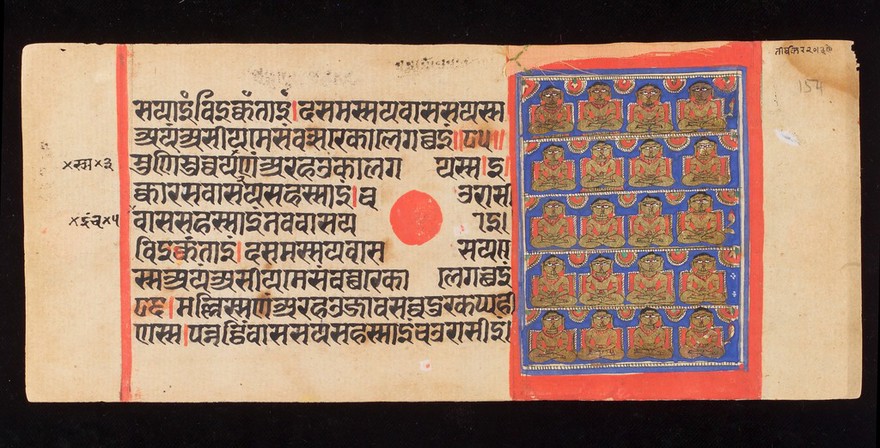 सयाइंविइक्कंताइं।दसमस्सयवाससयस्स
अयंअसीइमेसंवच्छरेकालेगच्छइ॥८५॥
मुणिसुव्वयस्सणंअरहउकालग यस्स।इ
क्कारसवाससयसहस्साइं।च उरासीइ
वाससहस्साइंनववाससय ाइं।
विइक्कंताइं।दसमस्सयवास सयस्स
स्सअयंअसीइमेसंवच्छरेका लेगच्छइ
८६।मल्लिस्सणंअरहउजावसव्वदुक्खप्पही
णस्स।पन्नट्ठिंवाससयसहस्साइंचउरासीइं
154